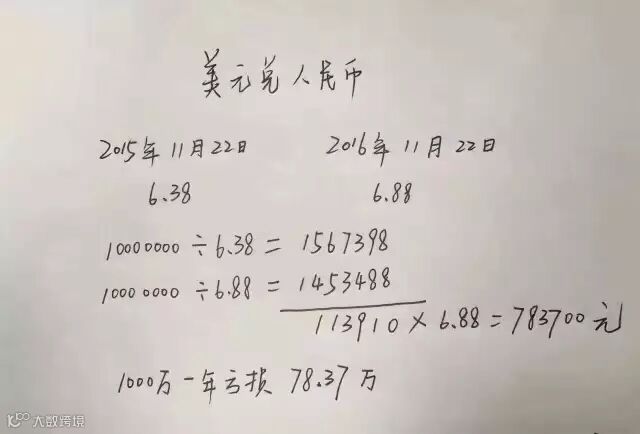 美元兑人民币
2015年11月22日 2016年11月22日
6.38 6.88
10000000÷6.38=1567398
10000000÷6.88=1453488
113910×6.88=783700元
1000万一年亏损 78.37万
大数跨境